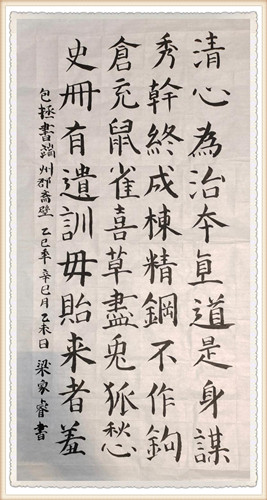 清心為治本直道是身謀
秀幹終成棟精鋼不作鉤
倉充鼠雀喜草盡兎狐愁
史冊有遺訓毋貽来者羞
包拯書端州郡齋壁 乙巳年 辛巳月 乙未日 梁家睿書